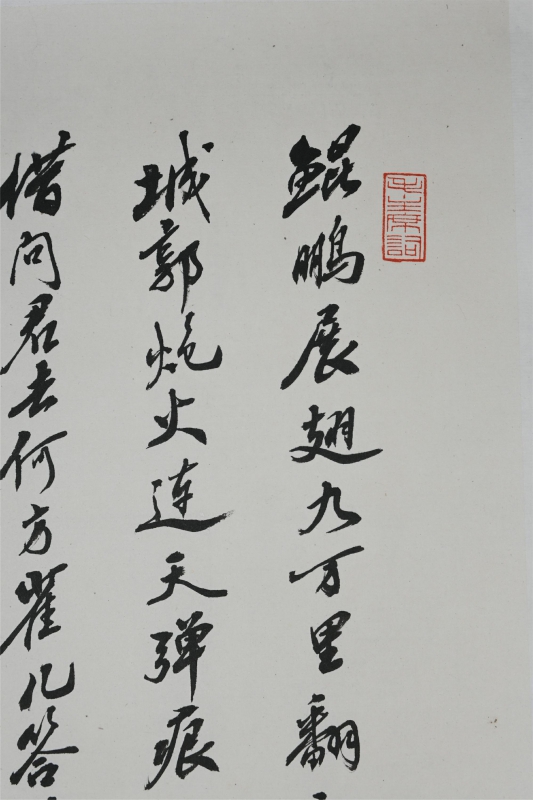 毛主席詞
鯤鹏展翅九万里翻
城郭炮火连天弹痕
借问君去何方雀儿答